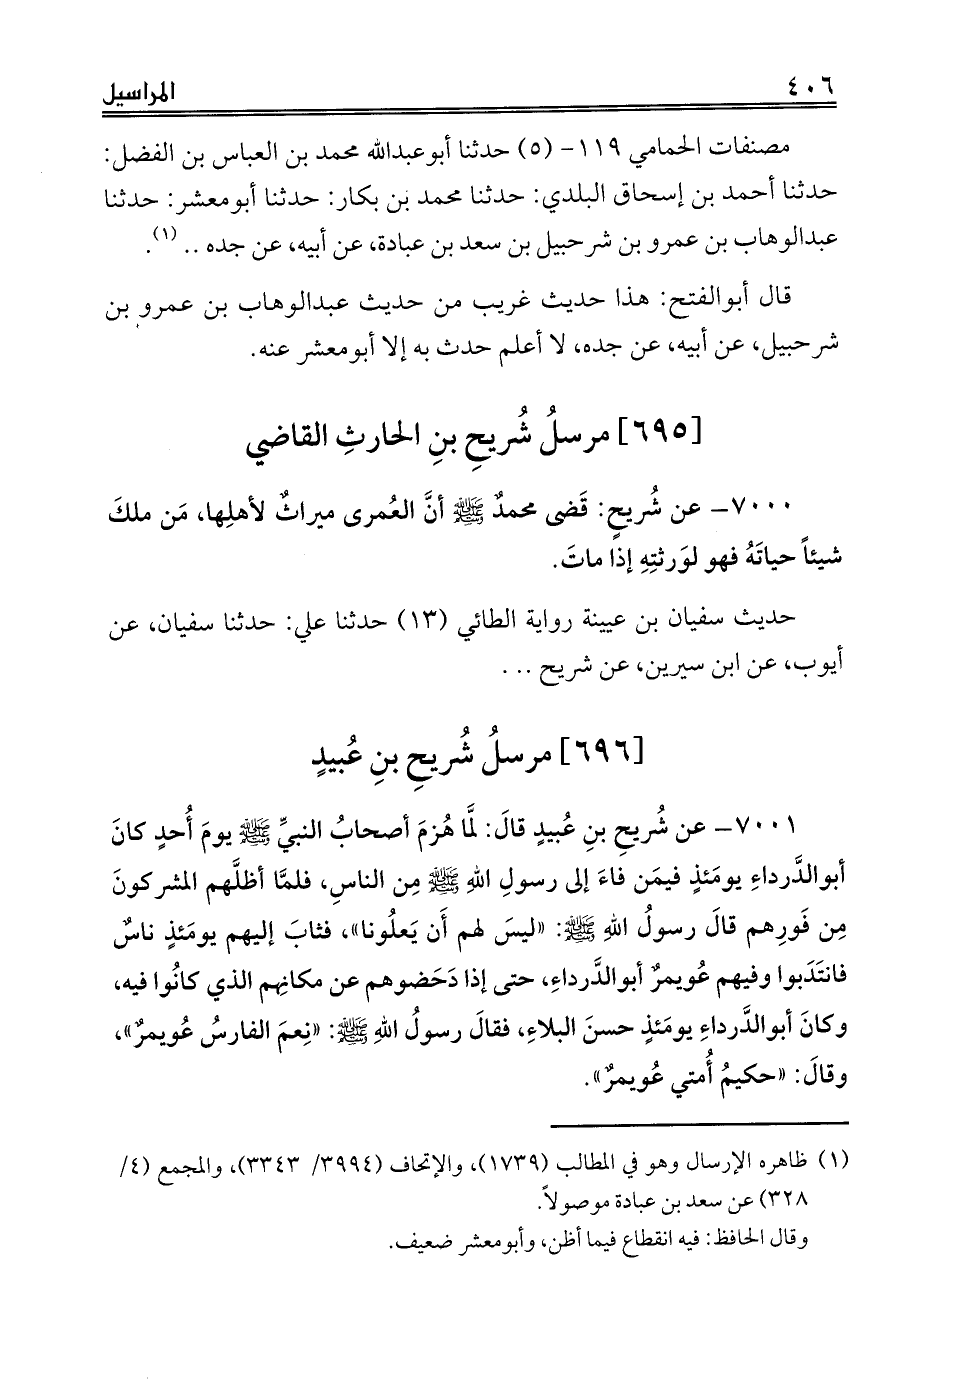 ٤٠٦
المراسيل
مصنفات الحمامي ١١٩- (٥) حدثنا أبوعبدالله محمد بن العباس بن الفضل:
حدثنا أحمد بن إسحاق البلدي: حدثنا محمد بن بكار: حدثنا أبومعشر: حدثنا
عبدالوهاب بن عمرو بن شرحبيل بن سعد بن عبادة، عن أبيه، عن جده .. (١).
قال أبوالفتح: هذا حديث غريب من حديث عبدالوهاب بن عمرو بن
شرحبيل، عن أبيه، عن جده، لا أعلم حدث به إلا أبومعشر عنه.
[٦٩٥] مرسلُ شُريحِ بنِ الحارثِ القاضي
٧٠٠٠- عن شُريحٍ: قَضى محمدٌ ﷺ أنَّ العُمرى ميراثٌ لأهلِها، مَن ملكَ
شيئاً حياتَهُ فهو لوَرثتِهِ إذا ماتَ.
حديث سفيان بن عيينة رواية الطائي (١٣) حدثنا علي: حدثنا سفيان، عن
أيوب، عن ابن سيرين، عن شريح ...
[٦٩٦] مرسلُ شُريحِ بنِ عُبيدٍ
٧٠٠١- عن شُريحِ بنِ عُبيدٍ قالَ: لمَّا هُزمَ أصحابُ النبيِّ ﷺ يومَ أُحدٍ كانَ
أبوالدَّرداءِ يومَئذٍ فيمَن فاءَ إلى رسولِ اللهِ ﷺ مِن الناسِ، فلمَّا أظلَّهم المشركونَ
مِن فَورِهم قالَ رسولُ اللهِ ﷺ: «ليسَ لهم أن يَعلُونا»، فثابَ إليهم يومَئذٍ ناسٌ
فانتَدَبوا وفيهم عُويمرٌ أبوالدَّرداءِ، حتى إذا دَحَضوهم عن مكانِهم الذي كانُوا فيه،
وكانَ أبوالدَّرداءِ يومَئذٍ حسنَ البلاءِ، فقالَ رسولُ اللهِ ﷺ: «نِعمَ الفارسُ عُويمرٌ»،
وقالَ: «حكيمُ أُمتي عُويمرٌ».
(١) ظاهره الإرسال وهو في المطالب (١٧٣٩)، والإتحاف (٣٩٩٤/ ٣٣٤٣)، والمجمع (٤/
٣٢٨) عن سعد بن عبادة موصولاً.
وقال الحافظ: فيه انقطاع فيما أظن، وأبومعشر ضعيف.